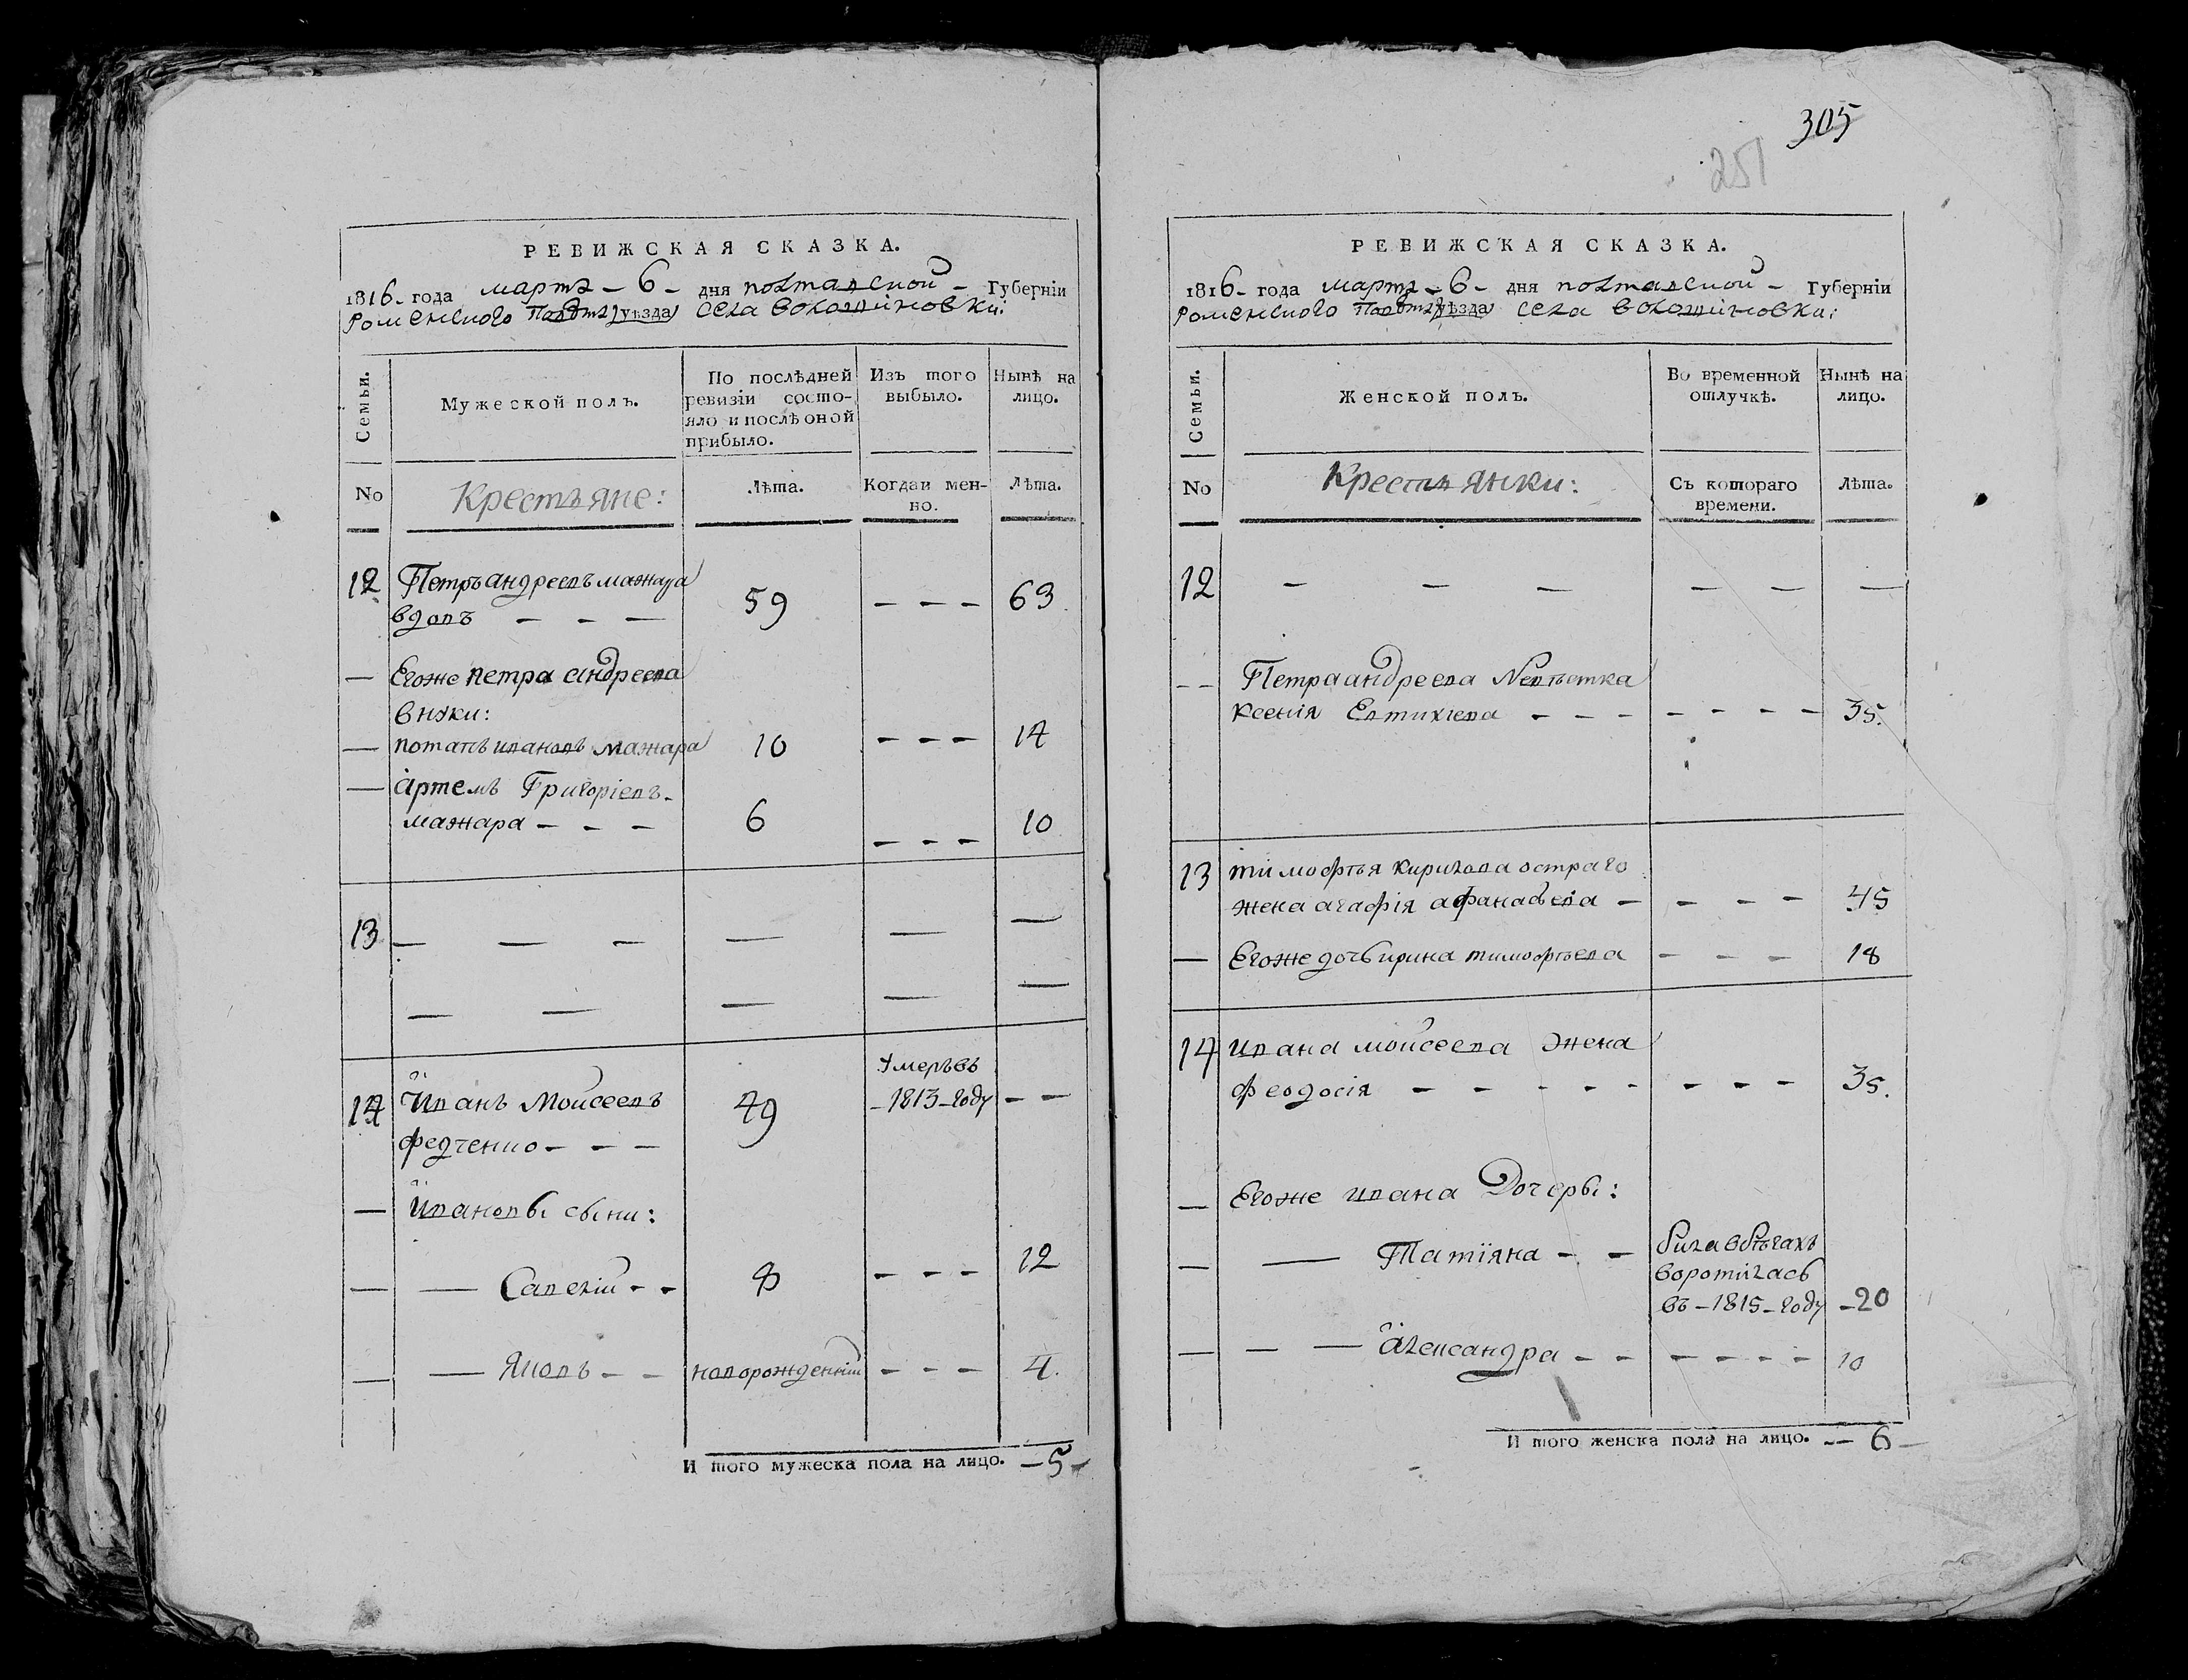 305
251
РЕВИЖСКАЯ СКАЗКА.
1816 года мартъ - 6 - дня полтавской - Губерніи
Роменского Повѣта уѣзда села волошиновки:
Семьи.
Мужеской полъ.
По послѣдней ревизіи состо-
яло и послѣ оной
прибыло.
Изъ того
выбыло.
Нынѣ на
лицо.
No
Крестьяне:
Лѣта.
Когда имен-
но.
Лѣта.
12 Петръ андреевъ мажара
вдовъ - - - 59 - - - 63
— Егоже петра андреева
внуки:
— потапъ ивановъ мажара 10 - - - 14
— артемъ Григоріевъ
мажара - - - 6 - - - 10
13 — — — — — —
— — — — —
14 Иванъ Моисеевъ 49 Умеръ въ
федченко - - - - 1813 - году - -
— Ивановы сыни:
— — Савелій - - 8 - - - 12
— — Яковъ - - новорожденній - - - 4.
И того мужеска пола на лицо. - 5 -
РЕВИЖСКАЯ СКАЗКА.
1816 - года мартъ - 6 - дня полтавской - Губерніи
Роменского Повѣта уѣзда села волошиновки:
Семьи.
Женской полъ.
Во временной
отлучкѣ.
Нынѣ на
лицо.
No
Крестьянки:
Съ котораго
времени.
Лѣта.
12 - - — — — —
- - Петра андреева невѣстка
ксенія Евтихіева - - - - - - - 35.
13 тимофѣя кирилова острого
жена агафія афанасьева - - - - 45
— Егоже дочь ирина тимофѣева - - - 18
14 ивана моисеева жена
феодосія - - - - - - - - 35.
— Егоже ивана Дочеры:
— — Татіяна - - била вбѣгахъ
воротилась
въ - 1815 - году - 20
— - — Александра - - - - - - - 10
И того женска пола на лицо. - - 6 -